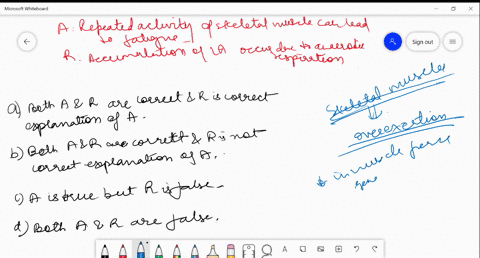 Microsoft Whiteboard
Sign out
A. Repeated activity of skeletal muscle can lead
to fatigue -
R. Accumulation of LA occurs due to anaerobic
respiration
a) Both A & R are correct & R is correct
explanation of A.
b) Both A&R are correct & R is not
correct explanation of A.
c) A is true but R is false -
d) Both A & R are false.
Skeletal muscles
overexertion
in muscle